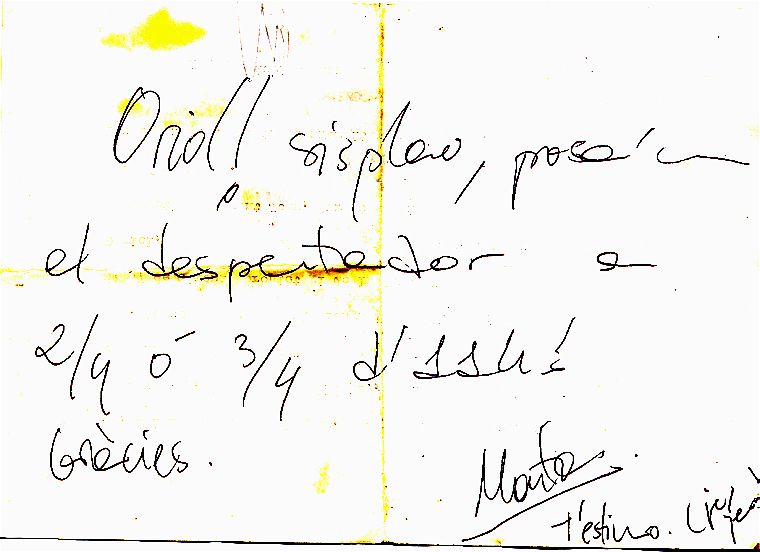 Oriol! sisplau, posa'm
el despertador a
2/4 ó 3/4 d'11h!
Gràcies.
Marta.
t'estimo.